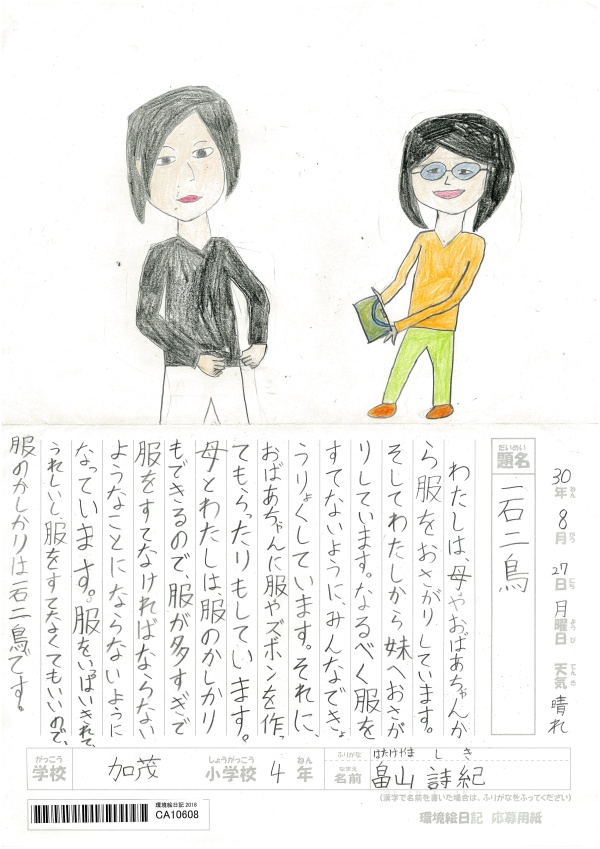 30年 8月 27日 月曜日 天気 晴れ
ねん がつ にち ようび てんき
だいめい
題名
一石二鳥
わたしは、母やおばあちゃんか
ら服をおさがりしています。
そしてわたしから妹へおさが
りしています。なるべく服を
すてないように、みんなできょ
うりょくしています。それに、
おばあちゃんに服やズボンを作っ
てもらったりもしています。
母とわたしは、服のかしかり
もできるので、服が多すぎて
服をすてなければならない
ようなことにならないように
なっています。服をいっぱいきれて、
うれしいし、服をすてなくてもいいので、
服のかしかりは一石二鳥です。
がっこう しょうがっこう ねん
学校 加茂 小学校 4年
ふりがな はたけやま しき
なまえ
名前 畠山 詩紀
(漢字で名前を書いた場合は、ふりがなをふってください)
環境絵日記 応募用紙
環境絵日記 2018
CA10608